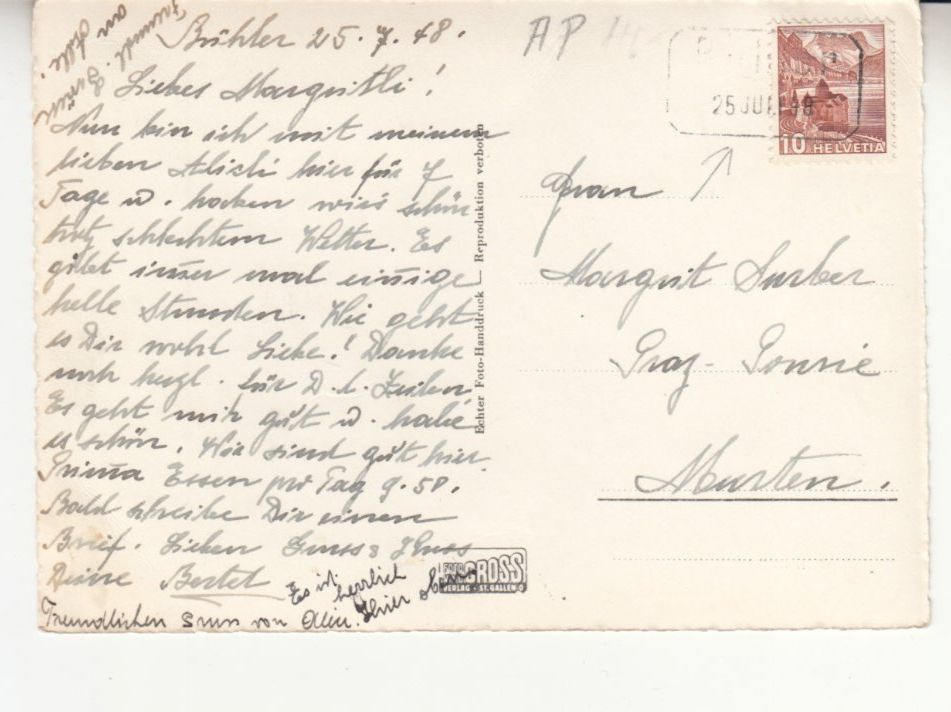 Bühler 25.7.48.
Liebes Margritli!
Nun bin ich mit meinem
lieben hier für 7
Tage u. haben wies schön
trotz schlechtem Wetter. Es
gibt immer mal einige
helle Stunden. Wie geht
es Dir wohl Liebe! Danke
noch herzl. für D. l. Zeilen
Es geht mir gut u. habe
es schön. Wir sind gut hier.
Prima Essen pro Tag 9.50.
Bald schreibe Dir einen
Brief. Lieben Gruss & Kuss
Deine Bertel
Es ist
herrlich
hier oben
Freundlichen Gruss von
Freundl.
Grüsse
an Alle.
Echter Foto-Handdruck — Reproduktion verboten
FOTO GROSS
VERLAG · ST. GALLEN
AP
25 JUL 48
10 HELVETIA
Frau
Margrit Surber
Praz-
Murten.